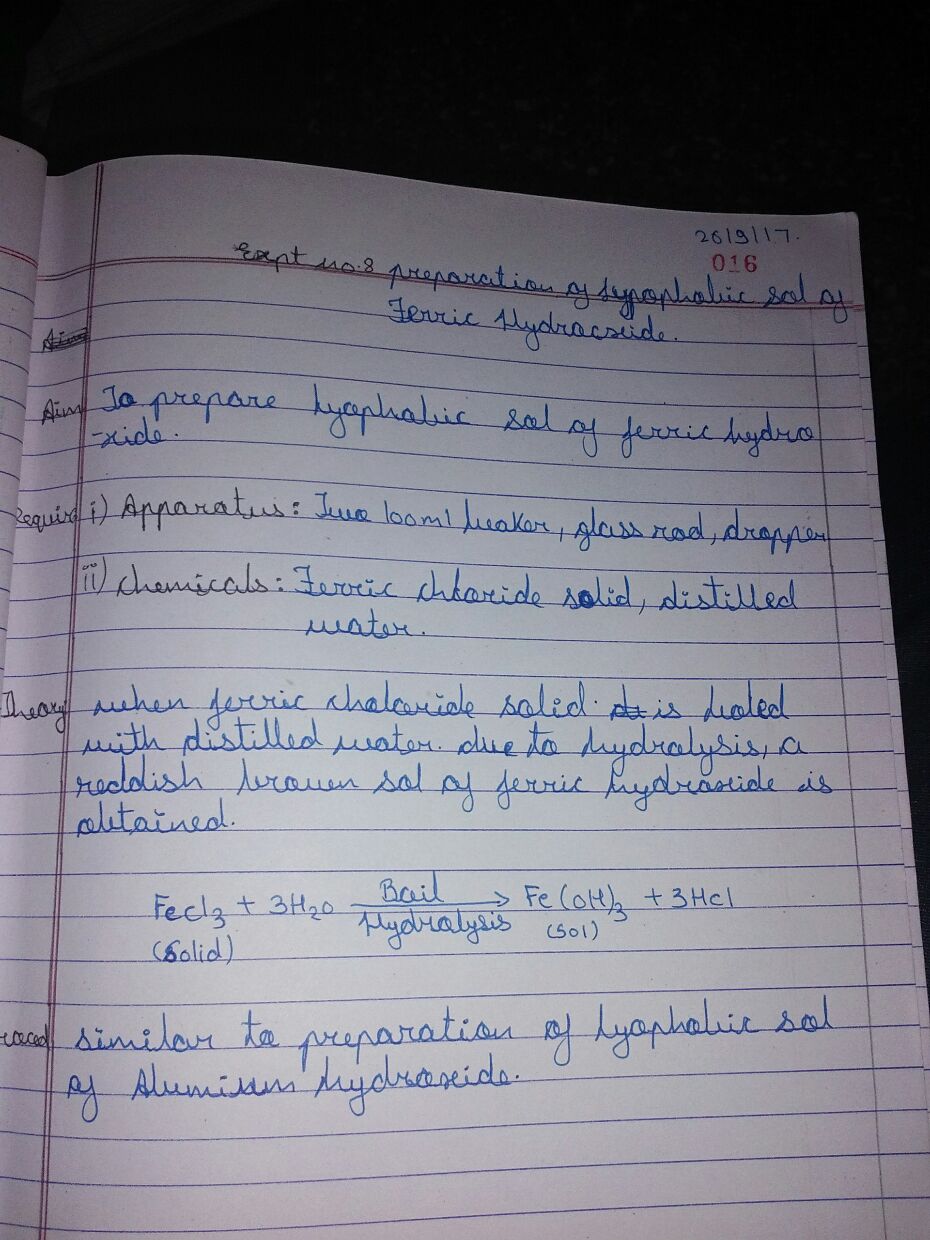 26/9/17.
016
Expt no.8 preparation of lyophobic sol of
Ferric Hydroxide.
Aim
Aim To prepare lyophobic sol of ferric hydro
-xide.
Requir i) Apparatus: Two 100ml beaker, glass rod, dropper
ii) Chemicals: Ferric chloride solid, distilled
water.
Theory when ferric chaloride solid is boled
with distilled water. due to hydrolysis, a
reddish brown sol of ferric hydroxide is
obtained.
FeCl3 + 3H2O Boil Hydrolysis → Fe(OH)3 + 3HCl
(Solid) (Sol)
roced similar to preparation of lyophobic sol
of Aluminum hydroxide.